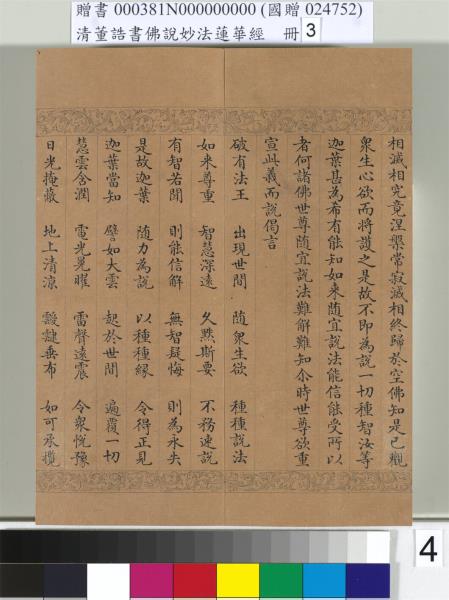 贈書 000381N000000000 (國贈 024752)
清董誥書佛說妙法蓮華經 冊 3
相滅相究竟涅槃常寂滅相終歸於空佛知是已觀
眾生心欲而將護之是故不即為說一切種智汝等
迦葉甚為希有能知如來隨宜說法能信能受所以
者何諸佛世尊隨宜說法難解難知尒時世尊欲重
宣此義而說偈言
破有法王 出現世間 隨眾生欲 種種說法
如來尊重 智慧深遠 久默斯要 不務速說
有智若聞 則能信解 無智疑悔 則為永失
是故迦葉 隨力為說 以種種緣 令得正見
迦葉當知 譬如大雲 起於世間 遍覆一切
慧雲含潤 電光晃曜 雷聲遠震 令眾悅豫
日光掩蔽 地上清涼 靉靆垂布 如可承攬
4